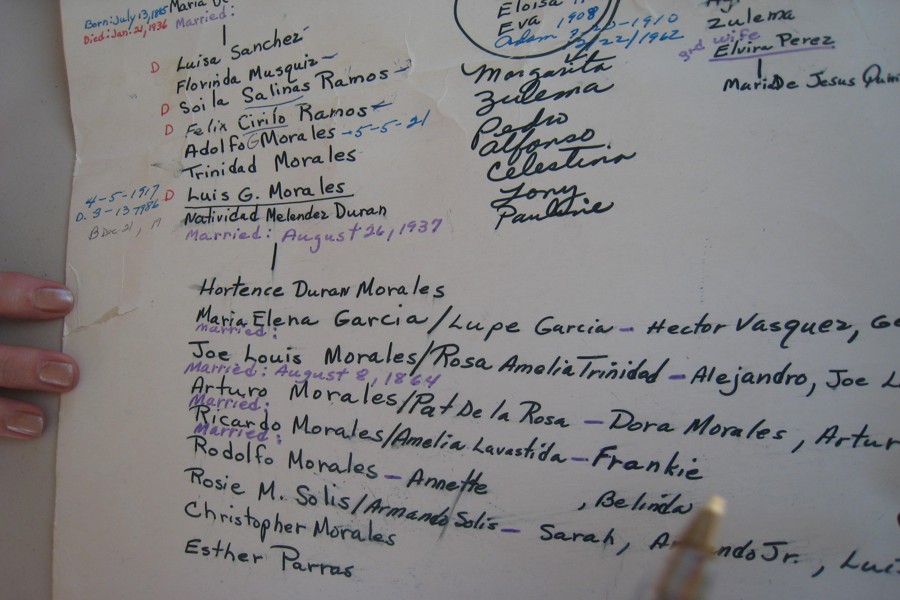 Born: July 13, 1895
Died: Jan. 21, 1936
Maria
Married:
D Luisa Sanchez
Florinda Musquiz
D Soila Salinas Ramos
D Felix Cirilo Ramos
Adolfo G Morales - 5-5-21
Trinidad Morales
4-5-1917
D Luis G. Morales
D. 3-13-1986
Natividad Melendez Duran
B Dec 21, 19
Married: August 26, 1937
Hortence Duran Morales
Maria Elena Garcia / Lupe Garcia - Hector Vasquez, Ge
Married:
Joe Louis Morales / Rosa Amelia Trinidad - Alejandro, Joe L
Married: August 8, 1864
Arturo Morales / Pat De la Rosa - Dora Morales, Artur
Married:
Ricardo Morales / Amelia Lavastida - Frankie
Married:
Rodolfo Morales - Annette , Belinda
Rosie M. Solis / Armando Solis - Sarah, Armando Jr., Lui
Christopher Morales
Esther Parras
Eloisa
Eva 1908
Adam 7-20-1910
2/22/1962
Margarita
Zulema
Pedro
Alfonso
Celestina
Tony
Pauline
Zulema
3rd wife
Elvira Perez
Maria De Jesus